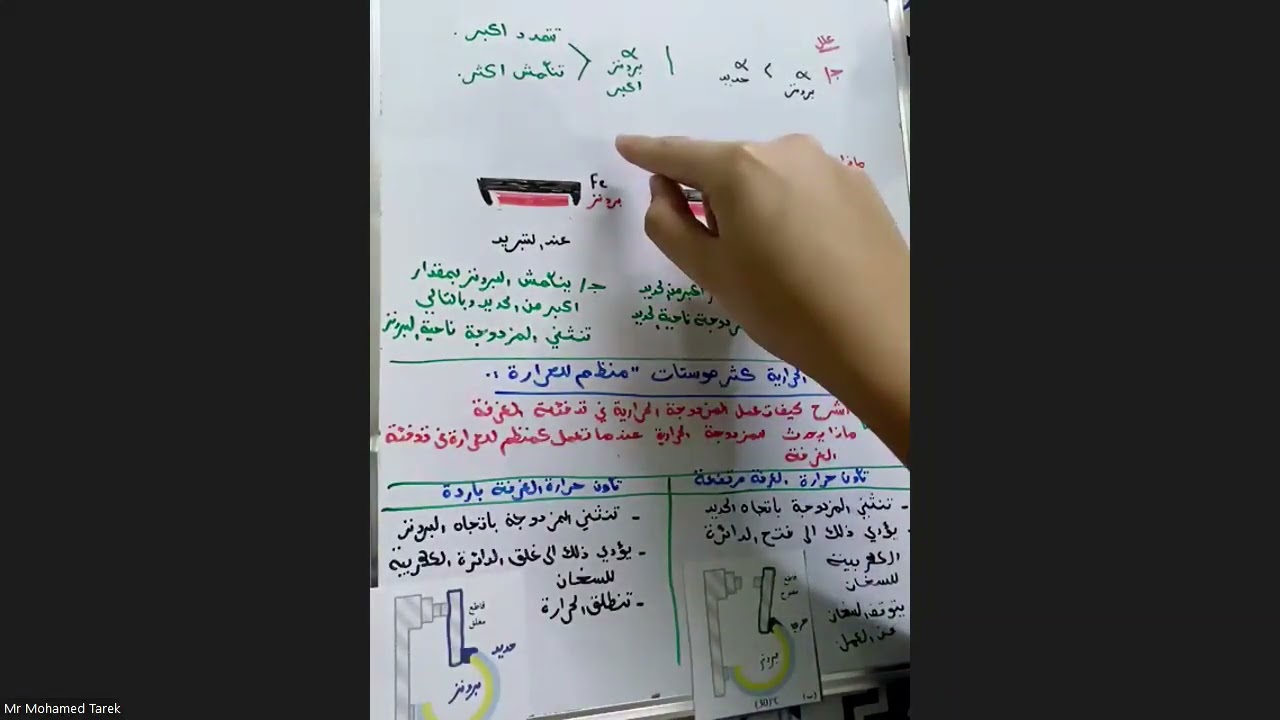 علل
جـ/ α برونز > α حديد | α برونز اكبر
تتمدد اكبر.
تنكمش اكثر.
Fe
برونز
عند التبريد
جـ/ ينكمش البرونز بمقدار
اكبر من الحديد وبالتالي
تنثني المزدوجة ناحية البرونز
اكبر من الحديد
ناحية الحديد
الحرارية كثرموستات "منظم للحرارة":
اشرح كيف تعمل المزدوجة الحرارية في تدفئة الغرفة
ماذا يحدث للمزدوجة الحرارية عندما تعمل كمنظم للحرارة في تدفئة
الغرفة
تكون حرارة الغرفة مرتفعة
- تنثني المزدوجة باتجاه الحديد
- يؤدي ذلك الى فتح الدائرة
الكهربية
للسخان
يتوقف السخان
عن العمل
قاطع
مفتوح
برونز
(30)°C
(ب)
تكون حرارة الغرفة باردة
- تنثني المزدوجة باتجاه البرونز
- يؤدي ذلك الى غلق الدائرة الكهربية
للسخان
- تنطلق الحرارة
قاطع
مغلق
حديد
برونز
Mr Mohamed Tarek